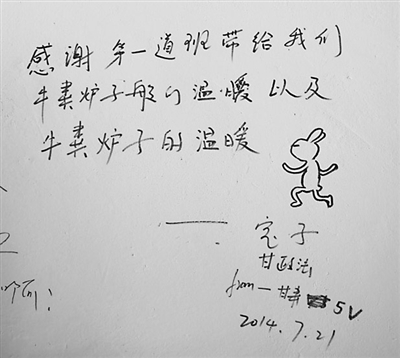 感谢第一道班带给我们
牛粪炉子般的温暖以及
牛粪炉子的温暖
——兔子
甘政法
from 一甘肃 SV
2014.7.21